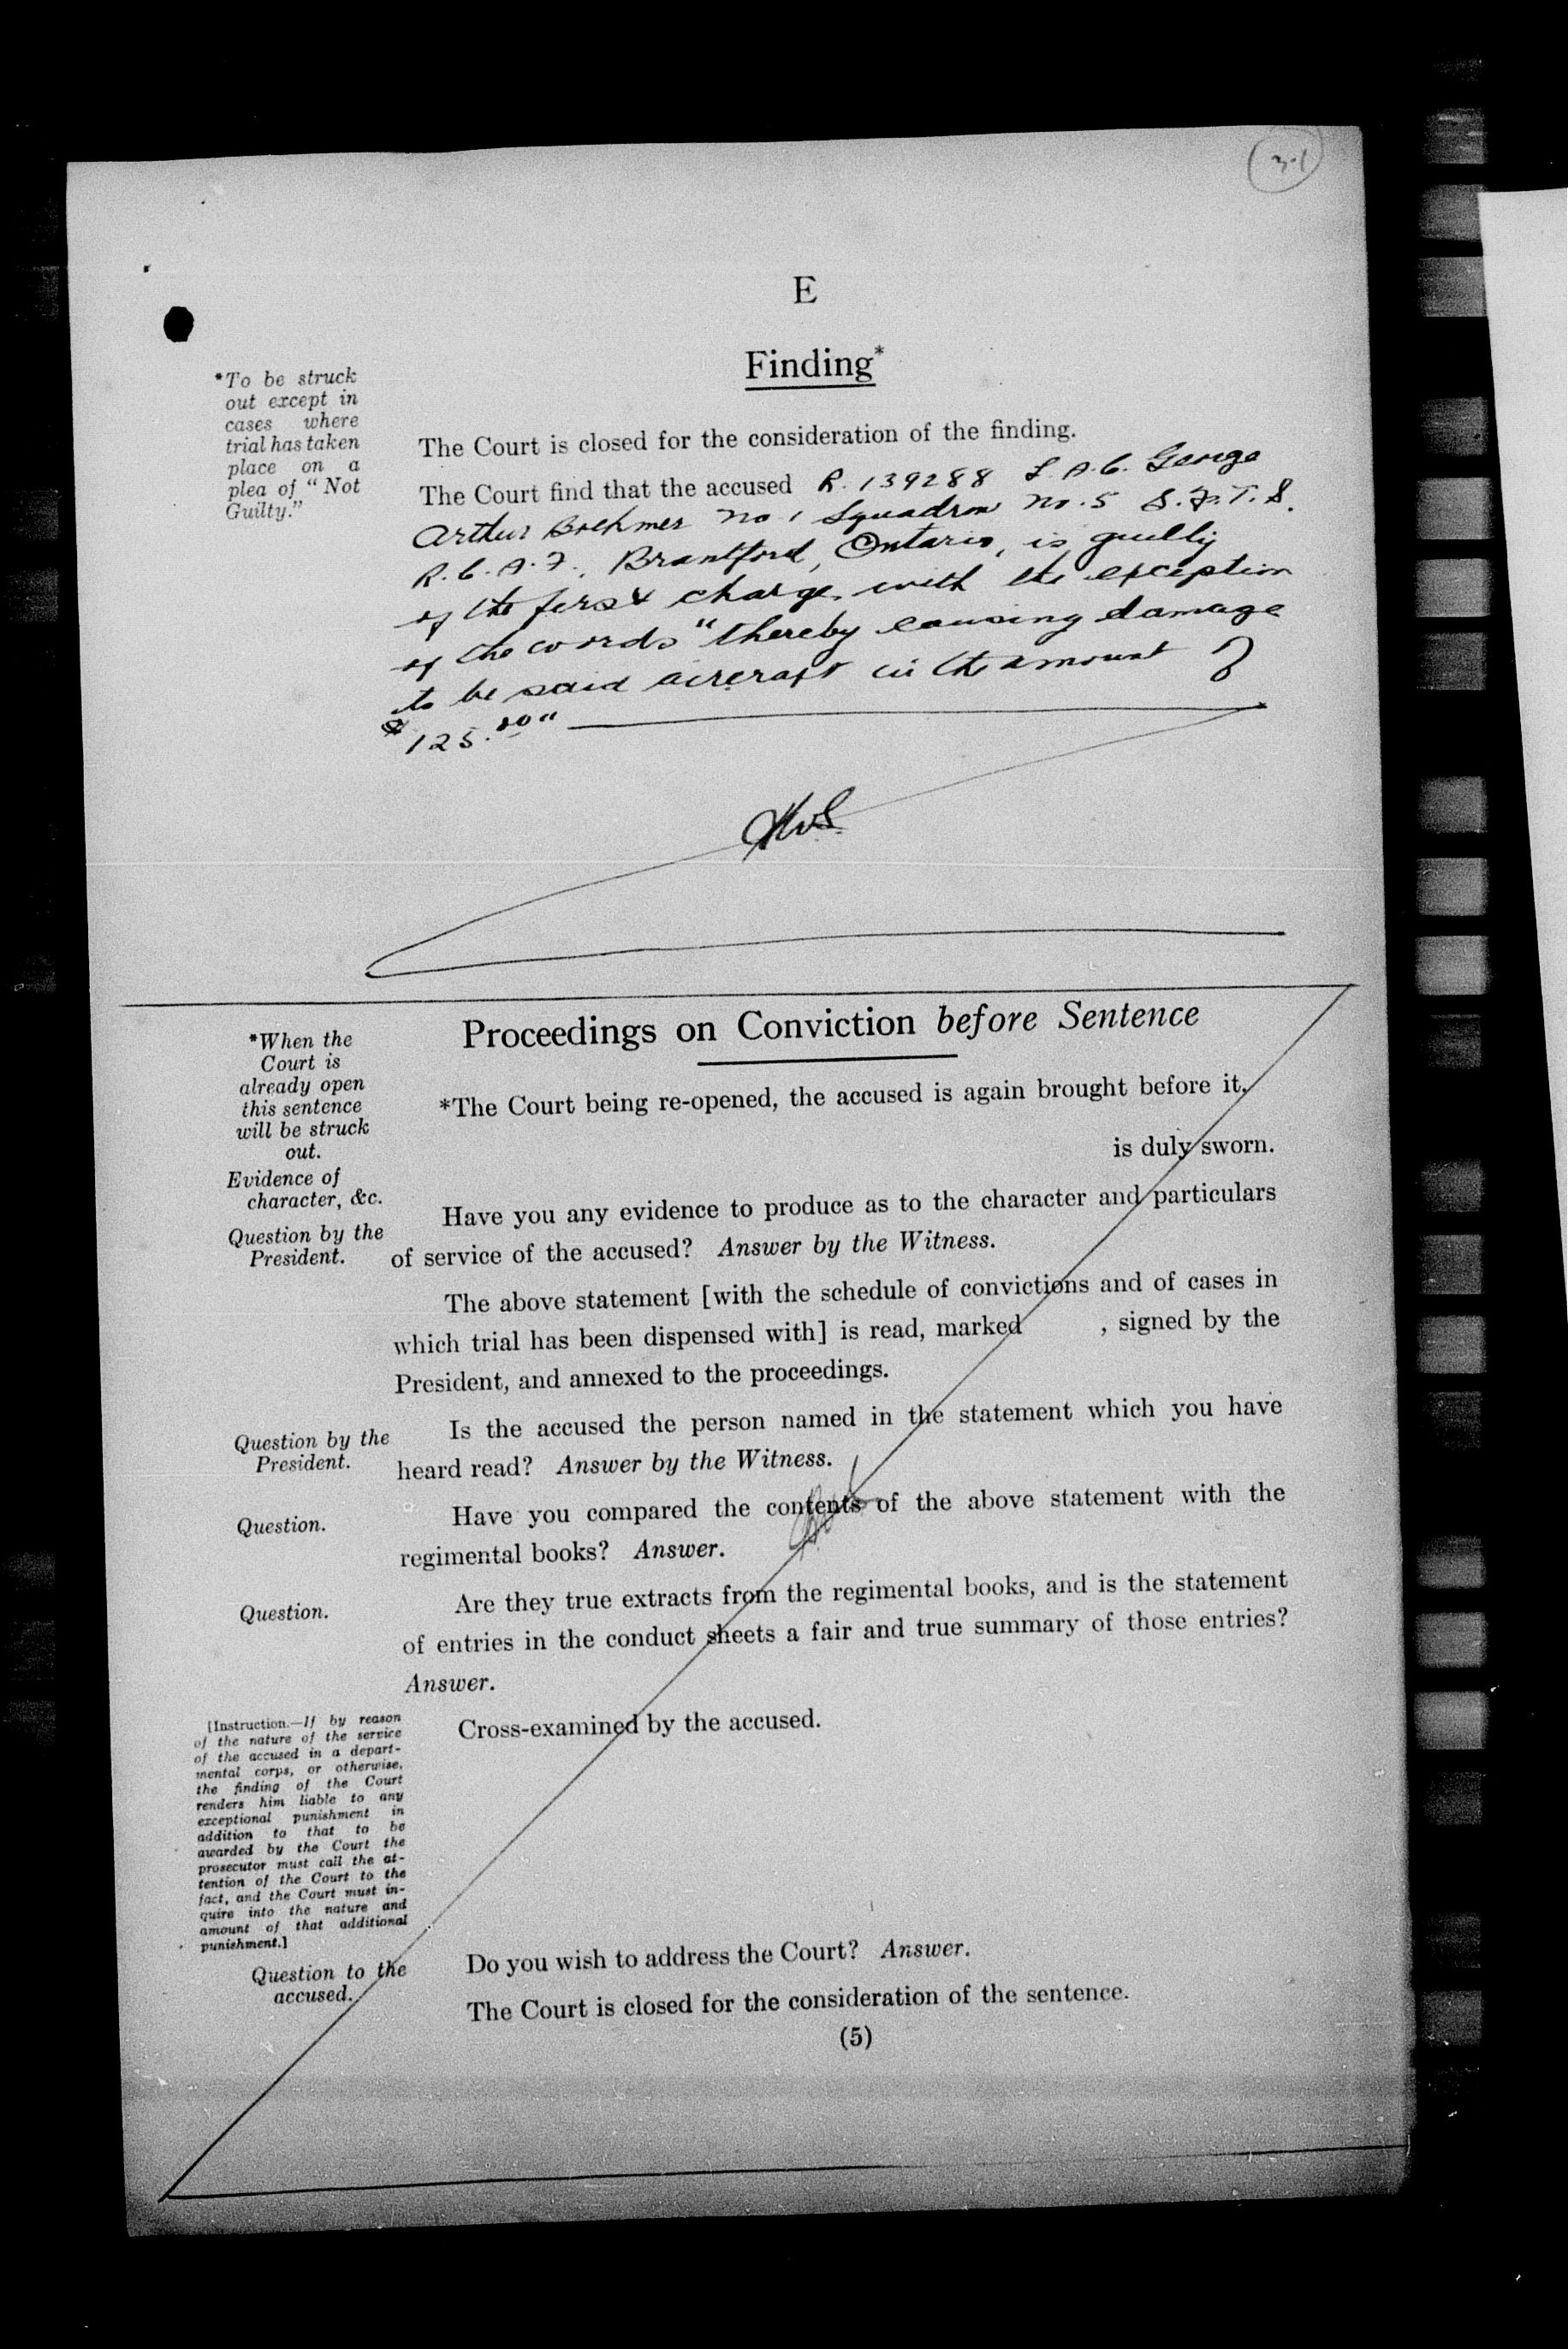 31
E
Finding*
*To be struck
out except in
cases where
trial has taken
place on a
plea of "Not
Guilty."
The Court is closed for the consideration of the finding.
The Court find that the accused R. 139288 L.A.C. George
Arthur Boehmer No 1 Squadron No. 5 S.F.T.S.
R.C.A.F., Brantford, Ontario, is guilty
of the first charge with the exception
of the words "thereby causing damage
to be said aircraft in the amount of
$125.00"
Proceedings on Conviction before Sentence
*When the
Court is
already open
this sentence
will be struck
out.
*The Court being re-opened, the accused is again brought before it.
is duly sworn.
Evidence of
character, &c.
Question by the
President.
Have you any evidence to produce as to the character and particulars
of service of the accused? Answer by the Witness.
The above statement [with the schedule of convictions and of cases in
which trial has been dispensed with] is read, marked , signed by the
President, and annexed to the proceedings.
Question by the
President.
Is the accused the person named in the statement which you have
heard read? Answer by the Witness.
Question.
Have you compared the contents of the above statement with the
regimental books? Answer.
Question.
Are they true extracts from the regimental books, and is the statement
of entries in the conduct sheets a fair and true summary of those entries?
Answer.
[Instruction.—If by reason
of the nature of the service
of the accused in a depart-
mental corps, or otherwise,
the finding of the Court
renders him liable to any
exceptional punishment in
addition to that to be
awarded by the Court the
prosecutor must call the at-
tention of the Court to the
fact, and the Court must in-
quire into the nature and
amount of that additional
punishment.]
Cross-examined by the accused.
Question to the
accused.
Do you wish to address the Court? Answer.
The Court is closed for the consideration of the sentence.
(5)